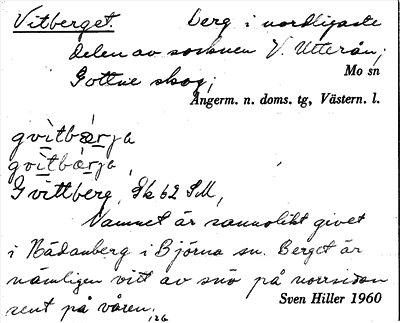 Vitberget berg i nordligaste
delen av socknen V. Utterån;
Gottne skog;
Mo sn
Ångerm. n. doms. tg, Västern. l.
gvitbärja
gvitbärja,
Gvittberg, Sk 62 SM,
Namnet är sannolikt givet
i Nädanberg i Björna sn. Berget är
nämligen vitt av snö på norrsidan
sent på våren.
Sven Hiller 1960